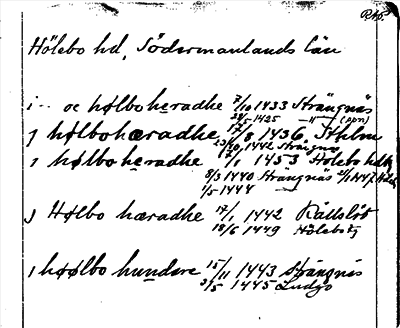 RAÖ.
Hölebo hd, Södermanlands län
i .. oc hølboheradhe 7/10 1433 Strängnäs
28/5 1425 —"— (orn)
j hølbohæradhe, 17/8 1436, Sthlm
23/10 1442 Strängnäs
i hølbo heradhe 17/1 1453 Hölebo
8/3 1440 Strängnäs
1/5 1444
j Hølbo hæradhe 17/1 1442 Källslöt
18/6 1449 Hölebo tg
i høølbo hundare 15/11 1443 Strängnäs
3/5 1445 Ludgo